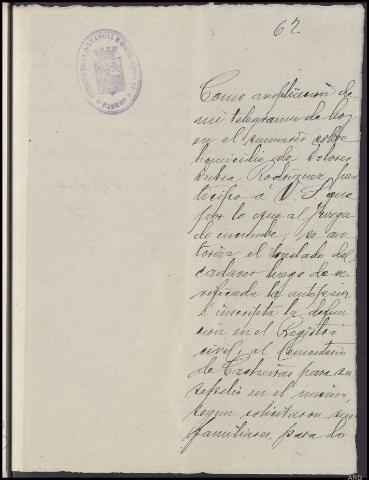 62
JUZGADO DE INSTANCIA E INSTRUCCION
Como ampliación de
mi telegrama de hoy
en el sumario sobre
homicidio de Dolores
Dubra Rodriguez, par
ticipo á V. S. que
por lo que al Juzga
do incumbe, se au-
toriza el traslado del
cadaver luego de ve-
rificada la autopsia
é inscripta la defun
ción en el Registro
civil, al Cementerio
de Castreñas para su
sepelio en el mismo,
segun solicitaron sus
familiares, para lo
ARG